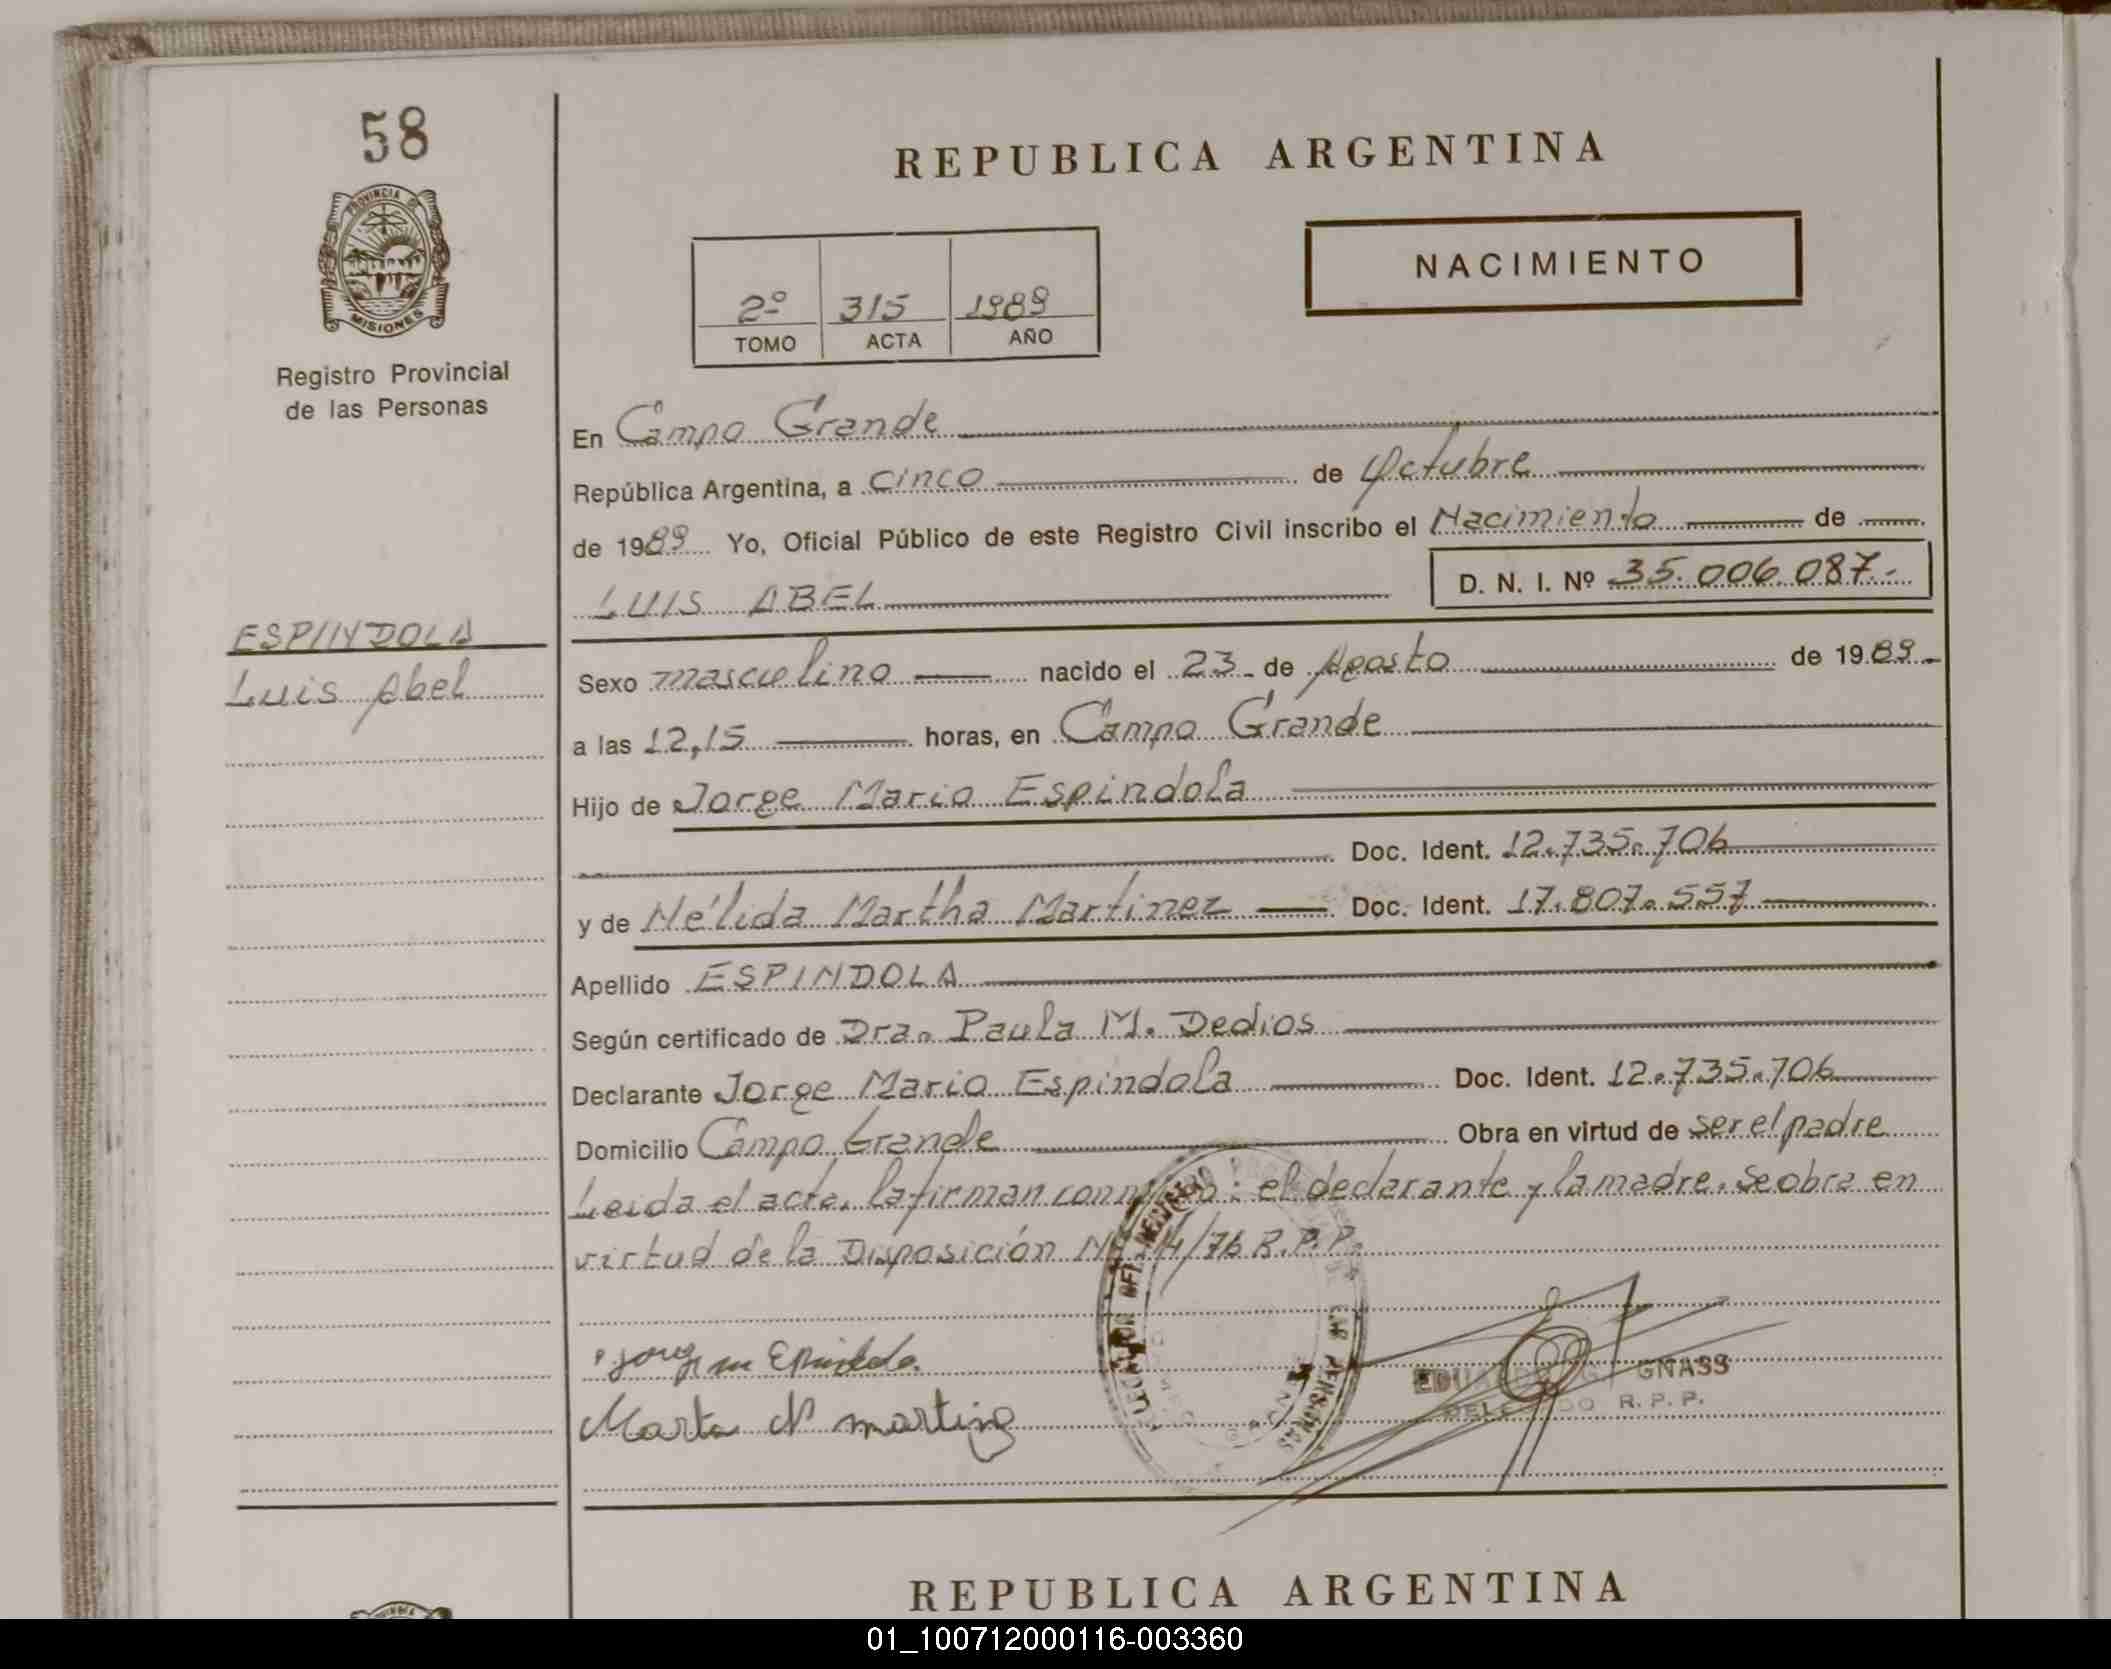 58
PROVINCIA DE
MISIONES
Registro Provincial
de las Personas
REPUBLICA ARGENTINA
NACIMIENTO
2º 315 1989
TOMO ACTA AÑO
En Campo Grande
República Argentina, a cinco de Octubre
de 1989 Yo, Oficial Público de este Registro Civil inscribo el Nacimiento de
LUIS ABEL D. N. I. Nº 35.006.087.-
ESPINDOLA
Luis Abel
Sexo masculino nacido el 23 de Agosto de 1989
a las 12,15 horas, en Campo Grande
Hijo de Jorge Mario Espindola
Doc. Ident. 12.735.706
y de Nélida Martha Martinez Doc. Ident. 17.807.557
Apellido ESPINDOLA
Según certificado de Dra. Paula M. Dedios
Declarante Jorge Mario Espindola Doc. Ident. 12.735.706
Domicilio Campo Grande Obra en virtud de ser el padre
Leida el acta, la firman conmigo: el declarante y la madre. Se obra en
virtud de la Disposición Nº 14/76 R.P.P.
Jorge m Espindola
Marta N martinez
EDUARDO G. GNASS
DELEGADO R. P. P.
REPUBLICA ARGENTINA
01_100712000116-003360